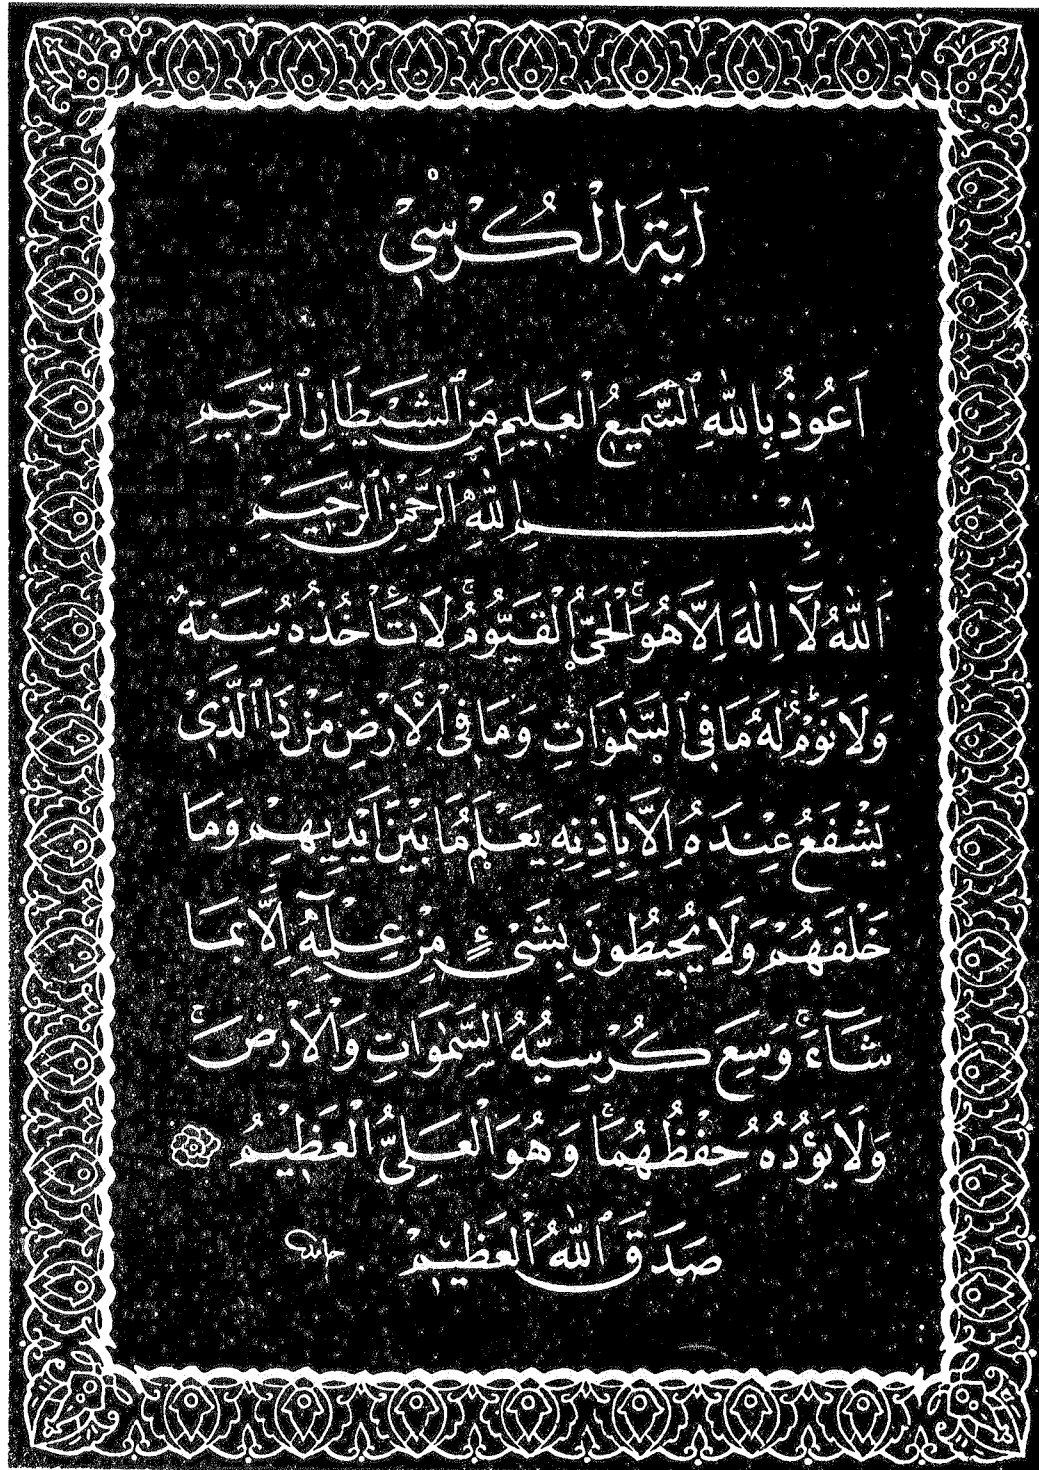 آيَةَ الْكُرْسِيْ
اَعُوذُ بِاللّٰهِ السَّمِيعُ الْعَلِيمِ مِنَ الشَّيْطَانِ الرَّجِيمِ
بِسْمِ اللّٰهِ الرَّحْمٰنِ الرَّحِيمِ
اَللّٰهُ لَآ اِلٰهَ اِلَّا هُوَۚ اَلْحَيُّ الْقَيُّومُۚ لَا تَأْخُذُهُ سِنَةٌ
وَلَا نَوْمٌۜ لَهُ مَا فِي السَّمٰوَاتِ وَمَا فِي الْاَرْضِ مَنْ ذَا الَّذِيْ
يَشْفَعُ عِنْدَهُ اِلَّا بِاِذْنِهِ يَعْلَمُ مَا بَيْنَ اَيْدِيهِمْ وَمَا
خَلْفَهُمْ وَلَا يُحِيطُونَ بِشَىْءٍ مِنْ عِلْمِهِٓ اِلَّا بِمَا
شَآءَۚ وَسِعَ كُرْسِيُّهُ السَّمٰوَاتِ وَالْاَرْضَۚ
وَلَا يَؤُدُهُ حِفْظُهُمَاۚ وَهُوَ الْعَلِيُّ الْعَظِيمُ
صَدَقَ اللّٰهُ الْعَظِيمْ